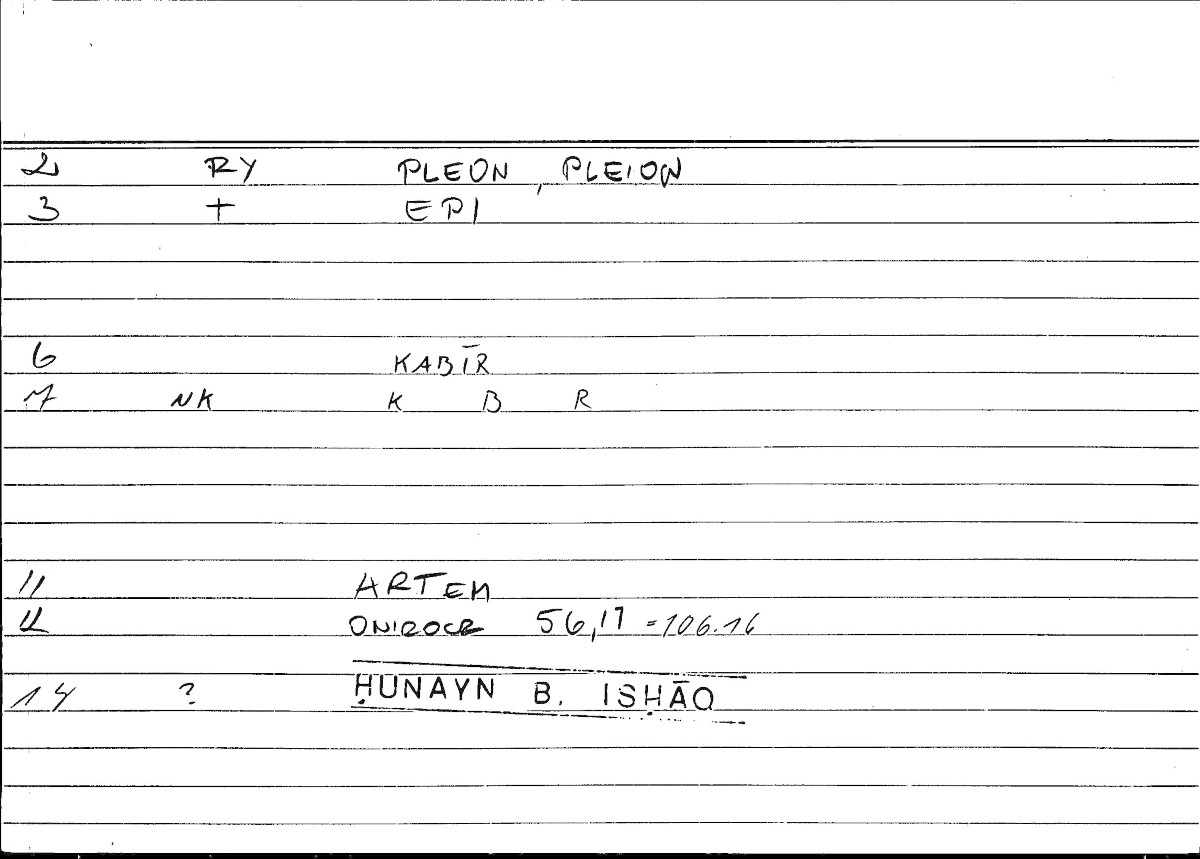 2 RY PLEON, PLEION
3 + EPI
6 KABĪR
7 NK K B R
11 ARTEM
12 ONIROCR 56,17 =106.16
14 ? ḤUNAYN B. ISḤĀQ